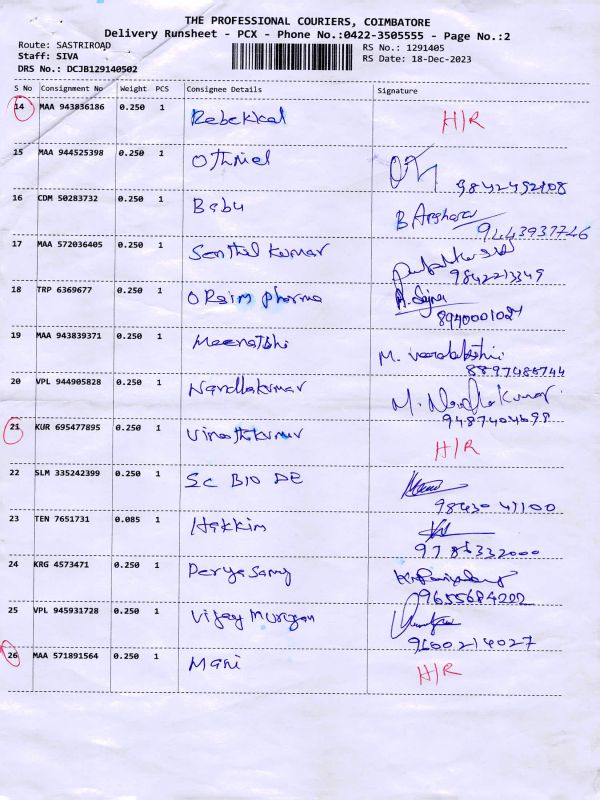 THE PROFESSIONAL COURIERS, COIMBATORE
Delivery Runsheet - PCX - Phone No.:0422-3505555 - Page No.:2
Route: SASTRIROAD
Staff: SIVA
DRS No.: DCJB129140502
RS No.: 1291405
RS Date: 18-Dec-2023
S No Consignment No Weight PCS Consignee Details Signature
14 MAA 943836186 0.250 1 Rebekkal H/R
15 MAA 944525398 0.250 1 Othniel 9842492108
16 CDM 50283732 0.250 1 Babu B 9443937746
17 MAA 572036405 0.250 1 Senthil kumar 9842213349
18 TRP 6369677 0.250 1 pharma 8940001024
19 MAA 943839371 0.250 1 Meenatshi M. 8897485744
20 VPL 944905828 0.250 1 Nandhakumar M. Nandhakumar 9487404698
21 KUR 695477895 0.250 1 Vinothkumar H/R
22 SLM 335242399 0.250 1 SC BIO DE 98430 41100
23 TEN 7651731 0.085 1 Hakkim
24 KRG 4573471 0.250 1 Peryasamy 9655684222
25 VPL 945931728 0.250 1 Vijay Murgan 9600214027
26 MAA 571891564 0.250 1 Mani H/R